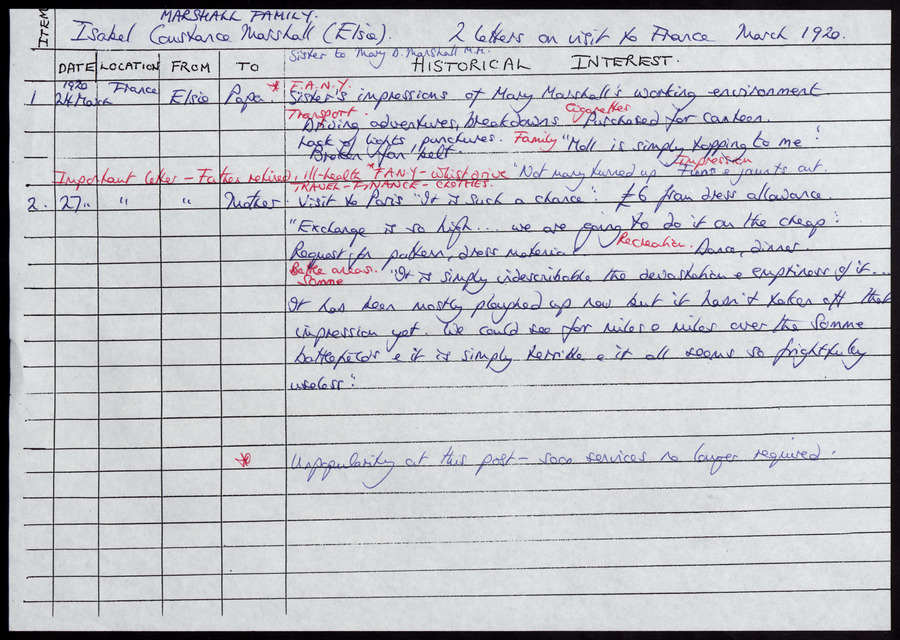 MARSHALL FAMILY.
ITEM Isabel Constance Marshall (Elsie). 2 letters on visit to France March 1920.
Sister to Mary D. Marshall M.M.
DATE LOCATION FROM TO HISTORICAL INTEREST.
1920 F.A.N.Y.
1 24 March France Elsie Papa. * Sister's impressions of Mary Marshall's working environment.
Transport. Cigarettes
Driving adventures, breakdowns Purchased for canteen.
Lack of lights punctures. Family "Moll is simply topping to me".
Broken 'fan' belt Impression
Important letter - Father retired, ill-health * F.A.N.Y - whist drive "Not many turned up" Firms & jaunts out.
TRAVEL - FINANCE - CLOTHES.
2. 27 " " " Mother Visit to Paris "It is such a chance": £6 from dress allowance.
"Exchange is so high... we are going to do it on the cheap":
Request for pattern, dress material. Recreation. Dance, dinner.
Battle areas. "It is simply indescribable the devastation & emptiness of it...
Somme
It has been mostly ploughed up now but it hasn't taken off that
impression yet. We could see for miles & miles over the Somme
battlefields & it is simply terrible & it all seems so frightfully
useless":
* Unpopularity at this post - soon services no longer required.